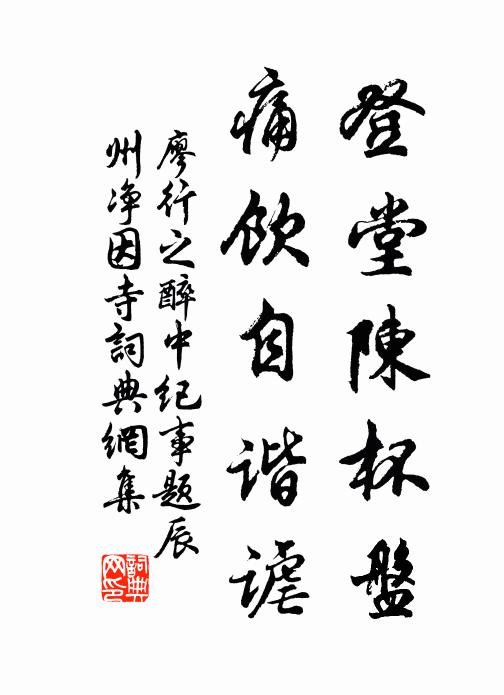 登堂陳杯盤
痛飲自谐謔
廖行之醉中纪事题辰
州净因寺詞典網集
詞典網印